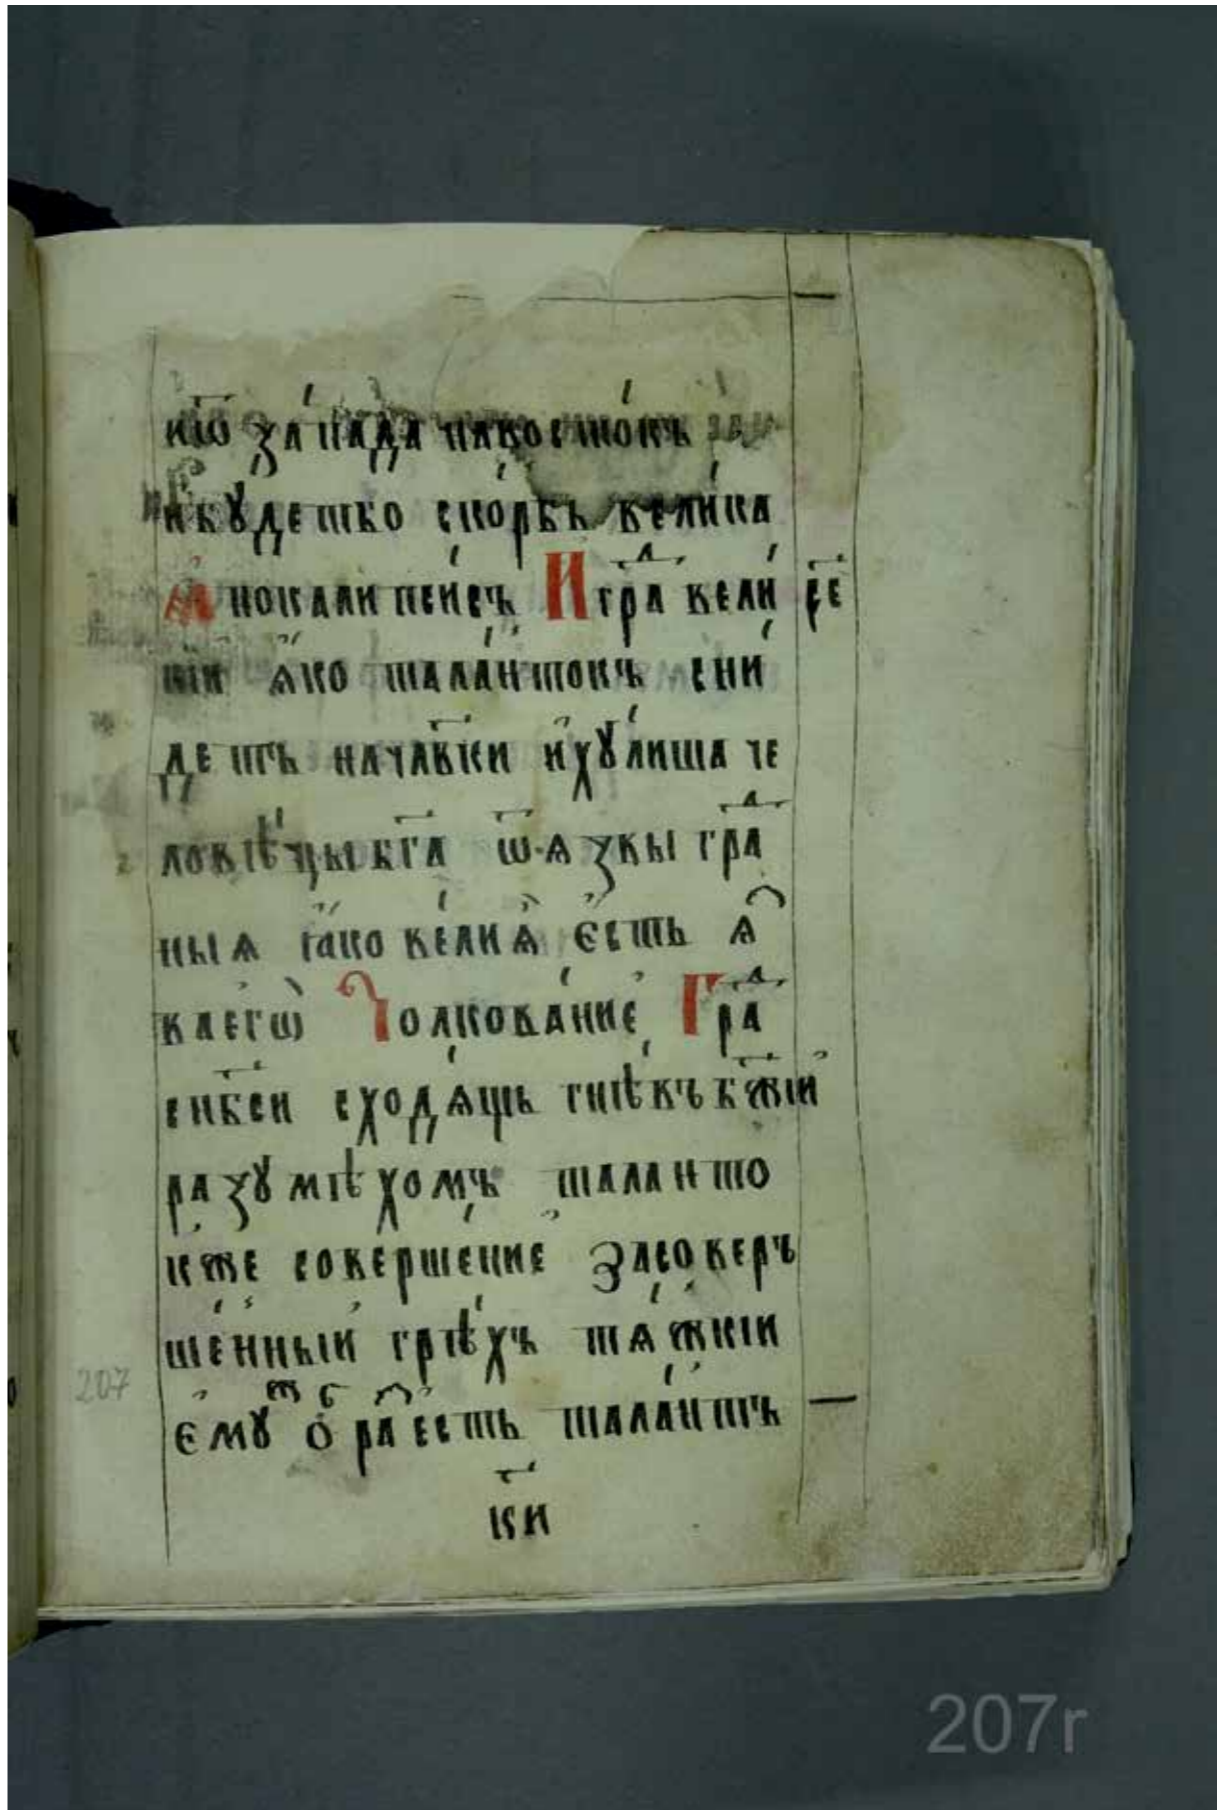 и҆ѿ за́пада навосто́къ
и҆бꙋ́детъбо ско́рбь вели́ка
А҆покали́псисъ И гра́д вели́ ре҃
нїи ꙗ҆ко тала́нтовъ сни́
детъ начл҃вки и҆хꙋ́лиша че
ловѣ́цы бг҃а ѿꙗзвы гра́д
ныѧ ꙗ҆́ко ве́лиѧ є҆́сть ѧ҆́
ва єгѡ̀ Толкова́ние Гра́д
снб҃си сходѧ́щь гнѣ́въ бж҃ий
разꙋмѣхомъ таланто
вже соверше́ние Засовер
ше́нный грѣ́хъ тѧ́жкїи
є҆мꙋ́ж ѻ҆бра есть тала́нтъ
207
ки
207r